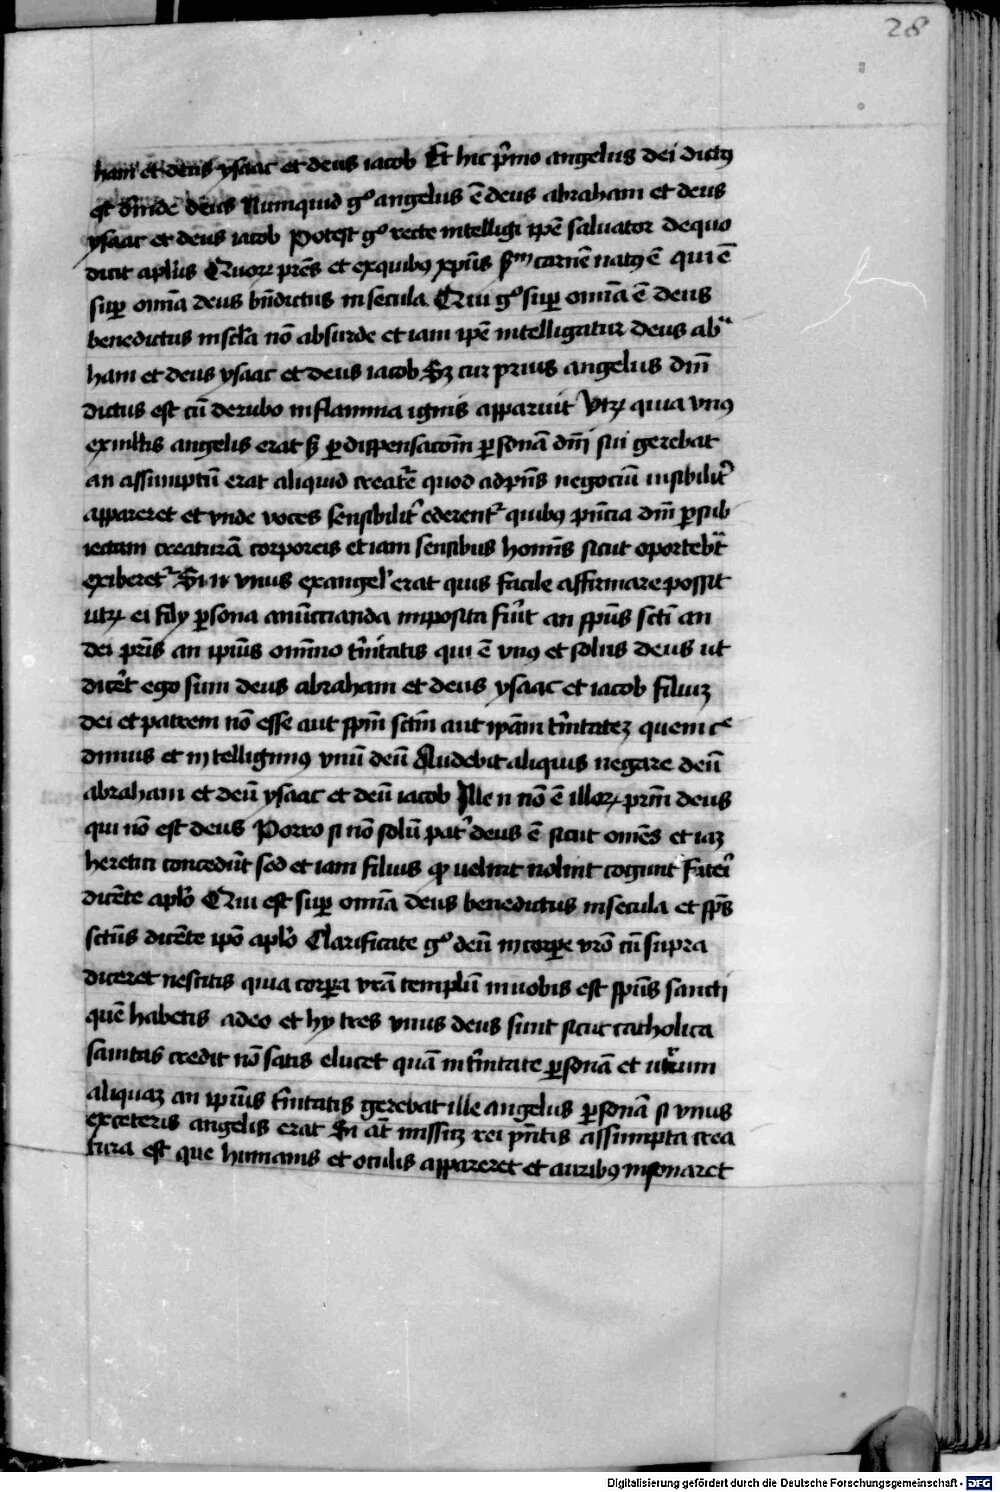 28
ham et deus ysaac et deus iacob Et hic p̄mo angelus dei dictꝯ
est deīnde deus Numquid gͦ angelus ē deus abraham et deus
ysaac et deus iacob Potest gͦ recte intelligi ip̄e saluator de quo
dicit aplūs Quoꝝ pr̄es et ex quibꝯ xp̄us ẜm carnē natꝯ ē qui ē
suꝑ om̄ia deus bn̄dictus in secula Qui gͦ suꝑ om̄ia ē deus
benedictus in scl̄a nō absurde et iam ip̄e intelligatur deus abᵃ
ham et deus ysaac et deus iacob Sꝫ cur prius angelus dn̄i
dictus est cū de rubo in flamma ignis apparuit Utꝝ quia vnꝯ
ex ml̄tis angelis erat sꝫ ꝑ dispensacōm ꝑsonā dn̄i sui gerebat
an assumptū erat aliquid creatūre quod ad pn̄s negociū uisibilit̄
appareret et vnde voces sensibilit̄ ederent᷑ quibꝯ pn̄cia dn̄i ꝑ sub
iectam creaturā corporeis et iam sensibus homīs sicut oportebᵃt
exiberet᷑ Si n̄ vnus ex angel᷑ erat quis facile affirmare possit
utꝝ ei filij ꝑsona anūccianda imposita fūit an sp̄us scti an
dei pr̄is an ip̄ius om̄ino t̄nitatis qui ē vnꝯ et solus deus ut
dicēt ego sum deus abraham et deus ysaac et iacob filiuꝫ
dei et patrem nō esse aut sp̄m sctm̄ aut ip̄am t̄nitateꝫ quem cᵉ
dimus et intelligimꝯ vnū deū Audebit aliquis negare deū
abraham et deū ysaac et deū iacob Ille n̄ nō ē illoꝝ pr̄m deus
qui nō est deus Porro si nō solū pat᷑ deus ē sicut om̄es et iaꝫ
heretici concedūt sed et iam filius qͦ uelint nolint cogunt᷑ fateri
dicēte aplō Qui est suꝑ om̄ia deus benedictus in secula et sp̄s
sctūs dicēte ip̄o aplō Clarificate gͦ deū in corꝑe vr̄o cū supra
diceret nescitis quia corꝑa vr̄a templū in uobis est sp̄us sancti
quē habetis a deo et hij tres vnus deus sunt sicut catholica
sanitas credit nō satis elucet quā in t̄nitate ꝑsonā et utrum
aliquaꝫ an ip̄ius t̄nitatis gerebat ille angelus ꝑsonā si vnus
ex ceteris angelis erat Si aūt in usuꝫ rei pn̄tis assumpta crea
tura est que humanis et oculis appareret et auribꝯ insonaret
Digitalisierung gefördert durch die Deutsche Forschungsgemeinschaft - DFG